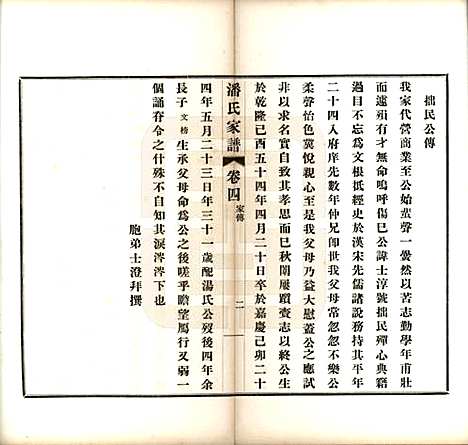 拙民公傳
我家代營商業至公始蜚聲一黌然以苦志勤學年甫壯
而遽殞有才無命嗚呼傷已公諱士淳號拙民殫心典籍
過目不忘爲文根柢經史於漢宋先儒諸說務持其平年
二十四入府庠先數年仲兄卽世我父母常忽忽不樂公
柔聲怡色冀悅親心至是我父母乃益大慰蓋公之應試
非以求名實自致其孝思而已秋闈屢躓齎志以終公生
於乾隆己酉五十四年四月二十日卒於嘉慶己卯二十
潘氏家譜
卷四
家傳
二
四年五月二十三日年三十一歲配湯氏公歿後四年余
長子文榜生承父母命爲公之後嗟乎瞻望鴈行又弱一
個誦脊令之什殊不自知其淚涔涔下也
胞弟士澄拜撰